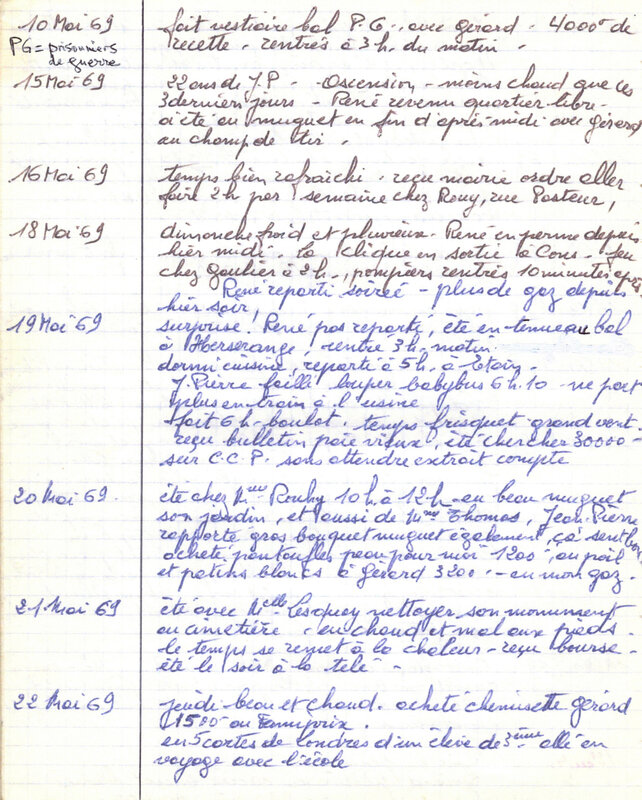 10 Mai 69 fait vestiaire bal P.G. avec Gérard. 4000F de
PG = prisonniers de guerre
recette. rentrés à 3h. du matin.
15 Mai 69 22 ans de J.P. Ascension - moins chaud que ces
3 derniers jours - René revenu quartier libre -
a été au muguet en fin d'après midi avec Gérard
au champ de tir.
16 Mai 69 temps bien rafraîchi. reçu mairie ordre aller
faire 2h par semaine chez Rouy, rue Pasteur,
18 Mai 69 dimanche froid et pluvieux. René en perme depuis
hier midi. la clique en sortie à Cons - feu
chez Gaulier à 2h., pompiers rentrés 10 minutes après
René reparti soirée - plus de gaz depuis
hier soir,
19 Mai 69 surprise! René pas reparti, été en tenue au bal
à Herserange, rentré 3h. matin.
dormi cuisine, reparti à 5h. à Etain -
J. Pierre failli louper babybus 6h.10 - ne part
plus en train à l'usine
fait 6h. boulot. temps frisquet grand vent.
reçu bulletin paie vieux, été chercher 30000 -
sur C.C.P. sans attendre extrait compte
20 Mai 69. été chez Mme Rouhy 10h. à 12h - eu beau muguet
son jardin, et aussi de Mme Thomas, Jean-Pierre
rapporté gros bouquet muguet également, ça sent bon
acheté pantoufles peau pour moi 1200, au poil
et patins blancs à Gérard 3200. - eu mon gaz.
21 Mai 69 été avec Melle Lesquoy nettoyer son monument
au cimetière. eu chaud et mal aux pieds.
le temps se remet à la chaleur - reçu bourse -
été le soir à la télé -
22 Mai 69 jeudi beau et chaud. acheté chemisette Gérard
1500 au Famiprix.
eu 5 cartes de Londres d'un élève de 3ème allé en
voyage avec l'école